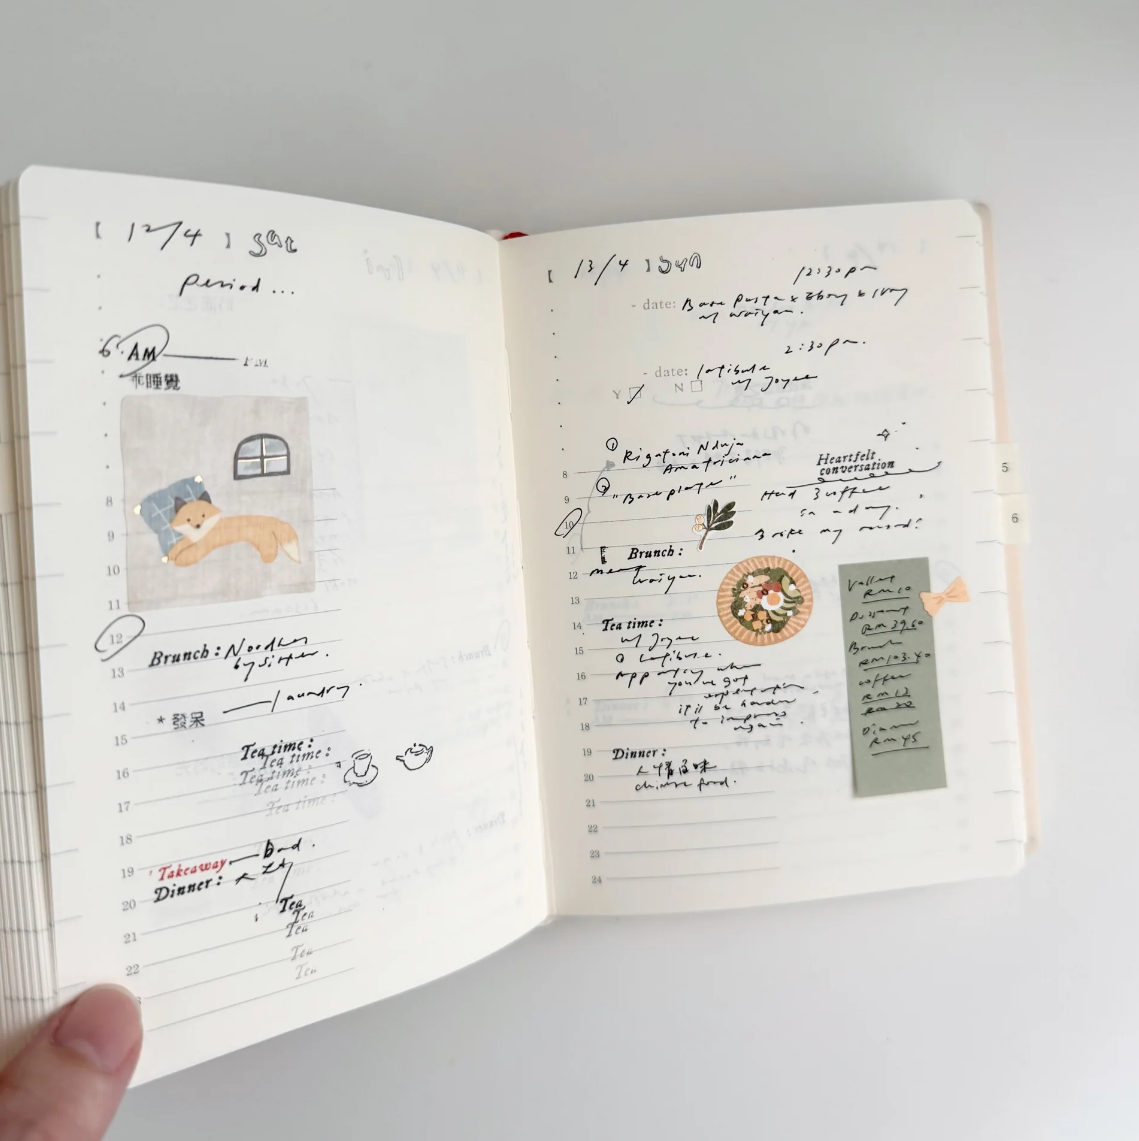 【 12/4 】 sat
period...
6. AM P.M.
睡覺
8
9
10
11
12
13
14
15
16
17
18
19
20
21
22
Brunch: Noodles
by sister.
laundry.
* 發呆
Tea time:
Tea time:
Tea time:
Tea time:
Tea time:
Takeaway bad.
Dinner:
Tea
Tea
Tea
Tea
Tea
【 13/4 】 sun
12:30pm
- date: Base Pasta x Ebony & Ivory
w/ Waiyan.
2:30pm.
- date:
w/ Joyce
Y N
① Rigatoni Nduja
Amatriciana
② "Base plater"
Heartfelt
conversation
Had 3 coffee
in a day.
Broke my record?
8
9
10
11
12
13
14
15
16
17
18
19
20
21
22
23
24
Brunch:
meet
Waiyan.
Tea time:
w/ Joyce
when
you've got
expectation,
it'll be harder
to impress
again.
Dinner:
人情味
chinese food.
RM10
Dessert
RM39.60
Brunch
RM103.40
coffee
RM12
Dinner
RM45
5
6